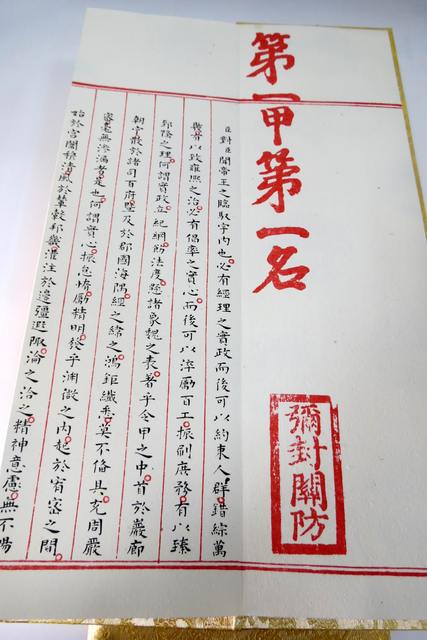 第一甲第一名
彌封關防
臣對臣聞帝王之臨馭宇內也必有經理之實政而後可以約束人群錯綜萬
機有以致雍熙之治必有倡率之實心而後可以淬勵百工振刷庶務有以臻
郅隆之理何謂實政立紀綱飭法度懸諸象魏之表著乎令甲之中首於巖廊
朝宁散於諸司百府暨及於郡國海隅經之緯之鴻鉅纖悉莫不備具充周嚴
密毫無滲漏者是也何謂實心振怠惰勵精明發乎淵微之內起於宥密之間
始於宮闈穆清風於輦轂邦畿灌注於邊疆遐陬淪之洽之精神意慮無不暢